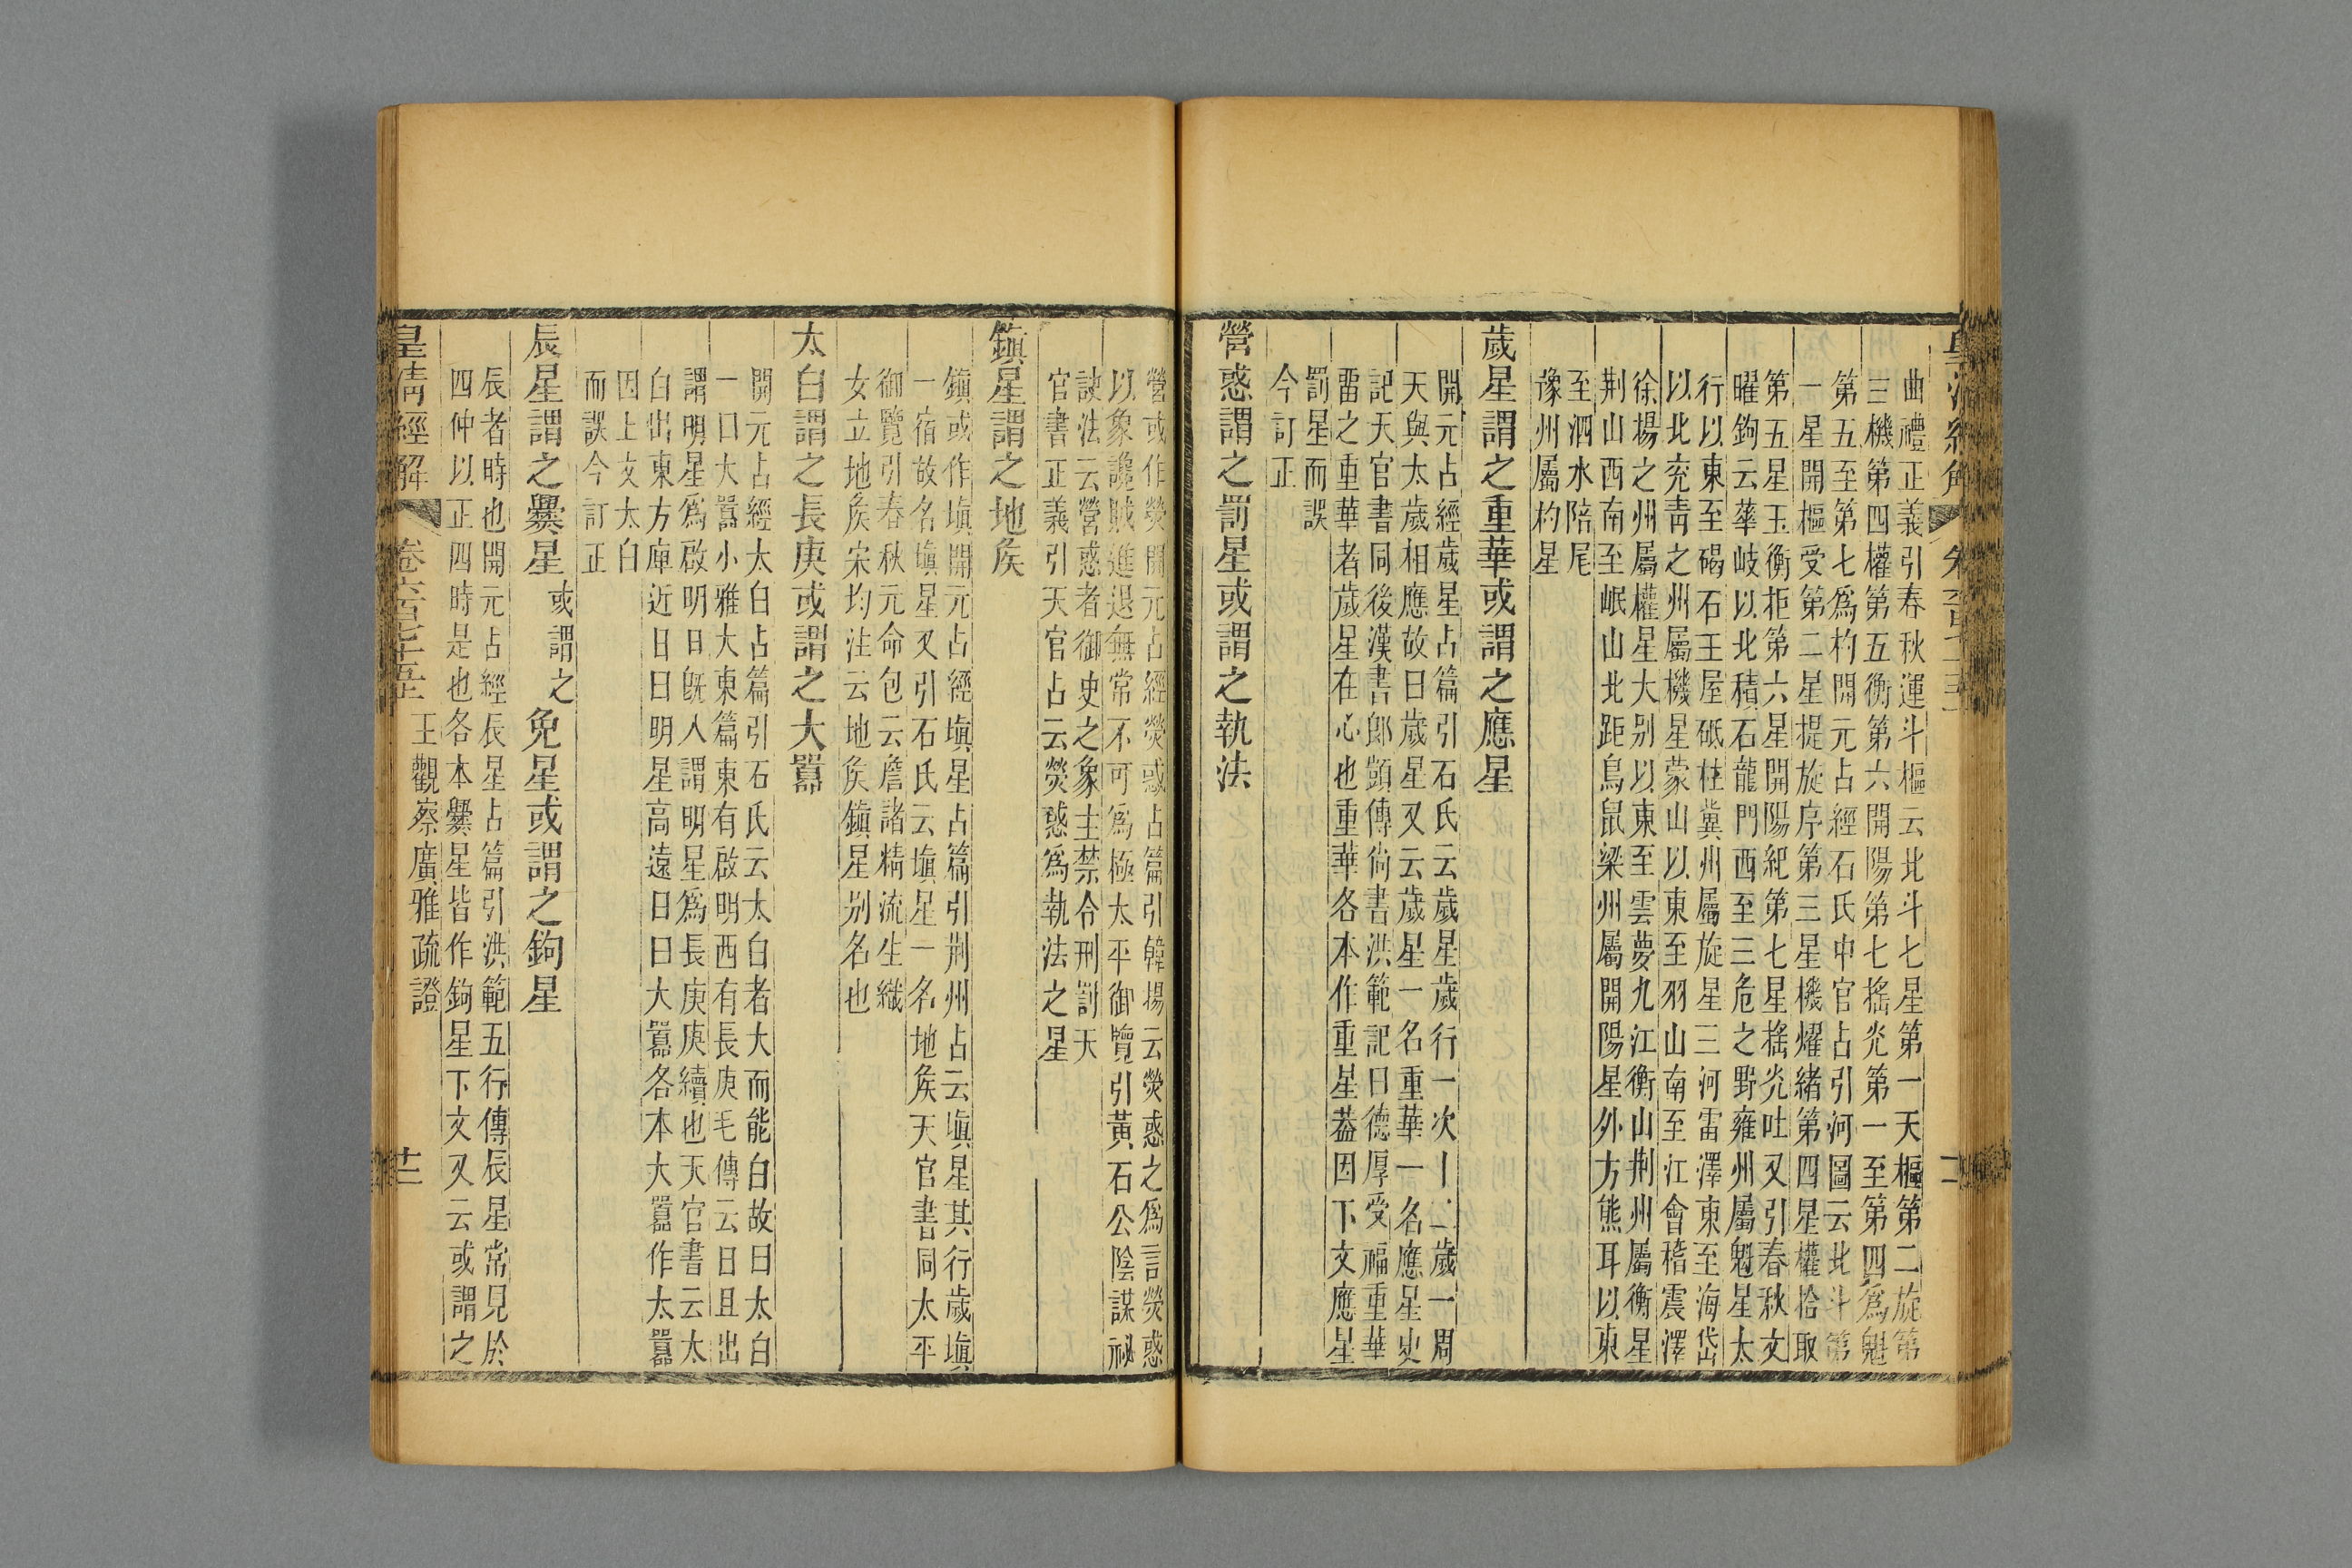 曲禮正義引春秋運斗樞云北斗七星第一天樞第二旋第
三機第四權第五衡第六開陽第七搖光第一至第四爲魁
第五至第七爲杓開元占經石氏中官占引河圖云北斗第
一星開樞受第二星提旋序第三星機燿緒第四星權拾取
第五星玉衡拒第六星開陽紀第七星搖光吐又引春秋文
曜鉤云華岐以北積石龍門西至三危之野雍州屬魁星太
行以東至碣石王屋砥柱冀州屬旋星三河雷澤東至海岱
以北兗靑之州屬機星蒙山以東至羽山南至江會稽震澤
徐揚之州屬權星大别以東至雲夢九江衡山荆州屬衡星
荆山西南至岷山北距鳥鼠梁州屬開陽星外方熊耳以東
至泗水陪尾
豫州屬杓星
歲星謂之重華或謂之應星
開元占經歲星占篇引石氏云歲星歲行一次十二歲一周
天與太歲相應故曰歲星又云歲星一名重華一名應星史
記天官書同後漢書郎顗傳尙書洪範記曰德厚受福重華
畱之重華者歲星在心也重華各本作重星葢因下文應星
罰星而誤
今訂正
營惑謂之罰星或謂之執法
營或作熒開元占經熒惑占篇引韓揚云熒惑之爲言熒惑
以象讒賊進退無常不可爲極太平御覽引黃石公陰謀祕
訣法云營惑者御史之象主禁令刑罰天
官書正義引天官占云熒惑爲執法之星
鎭星謂之地矦
鎭或作塡開元占經塡星占篇引荆州占云塡星其行歲塡
一宿故名塡星又引石氏云塡星一名地矦天官書同太平
御覽引春秋元命包云詹諸精流生織
女立地矦宋均注云地矦鎭星别名也
太白謂之長庚或謂之大囂
開元占經太白占篇引石氏云太白者大而能白故曰太白
一曰大囂小雅大東篇東有啟明西有長庚毛傳云日且出
謂明星爲啟明日旣入謂明星爲長庚庚續也天官書云太
白出東方庳近日曰明星高遠日曰大囂各本大囂作太囂
因上文太白
而誤今訂正
辰星謂之㸑星或謂之免星或謂之鉤星
辰者時也開元占經辰星占篇引洪範五行傳辰星常見於
四仲以正四時是也各本㸑星皆作鉤星下文又云或謂之
皇淸經解 卷六百七十五 王觀察廣雅疏證 十二